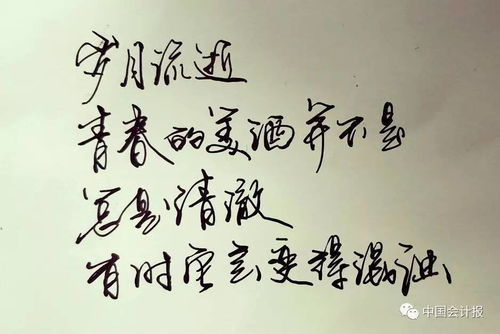 岁月流逝
青春的美酒并不是
总是清澈
有时它会变得混浊
中国会计报